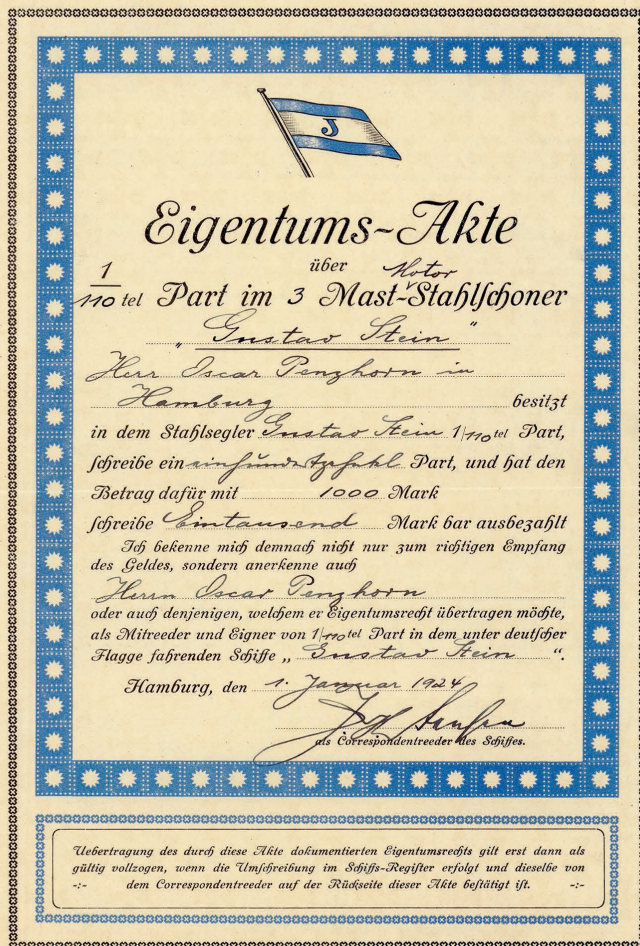 J
Eigentums-Akte
über Motor
1/110 tel Part im 3 Mast-Stahlschoner
„Gustav Stein"
Herr Oscar Penzhorn in
Hamburg besitzt
in dem Stahlsegler Gustav Stein 1/110 tel Part,
schreibe ein einhundertzehntel Part, und hat den
Betrag dafür mit 1000 Mark
schreibe Eintausend Mark bar ausbezahlt
Ich bekenne mich demnach nicht nur zum richtigen Empfang
des Geldes, sondern anerkenne auch
Herrn Oscar Penzhorn
oder auch denjenigen, welchem er Eigentumsrecht übertragen möchte,
als Mitreeder und Eigner von 1/110 tel Part in dem unter deutscher
Flagge fahrenden Schiffe „Gustav Stein“.
Hamburg, den 1. Januar 1924
als Correspondentreeder des Schiffes.
Uebertragung des durch diese Akte dokumentierten Eigentumsrechts gilt erst dann als
gültig vollzogen, wenn die Umschreibung im Schiffs-Register erfolgt und dieselbe von
-:- dem Correspondentreeder auf der Rückseite dieser Akte bestätigt ist. -:-